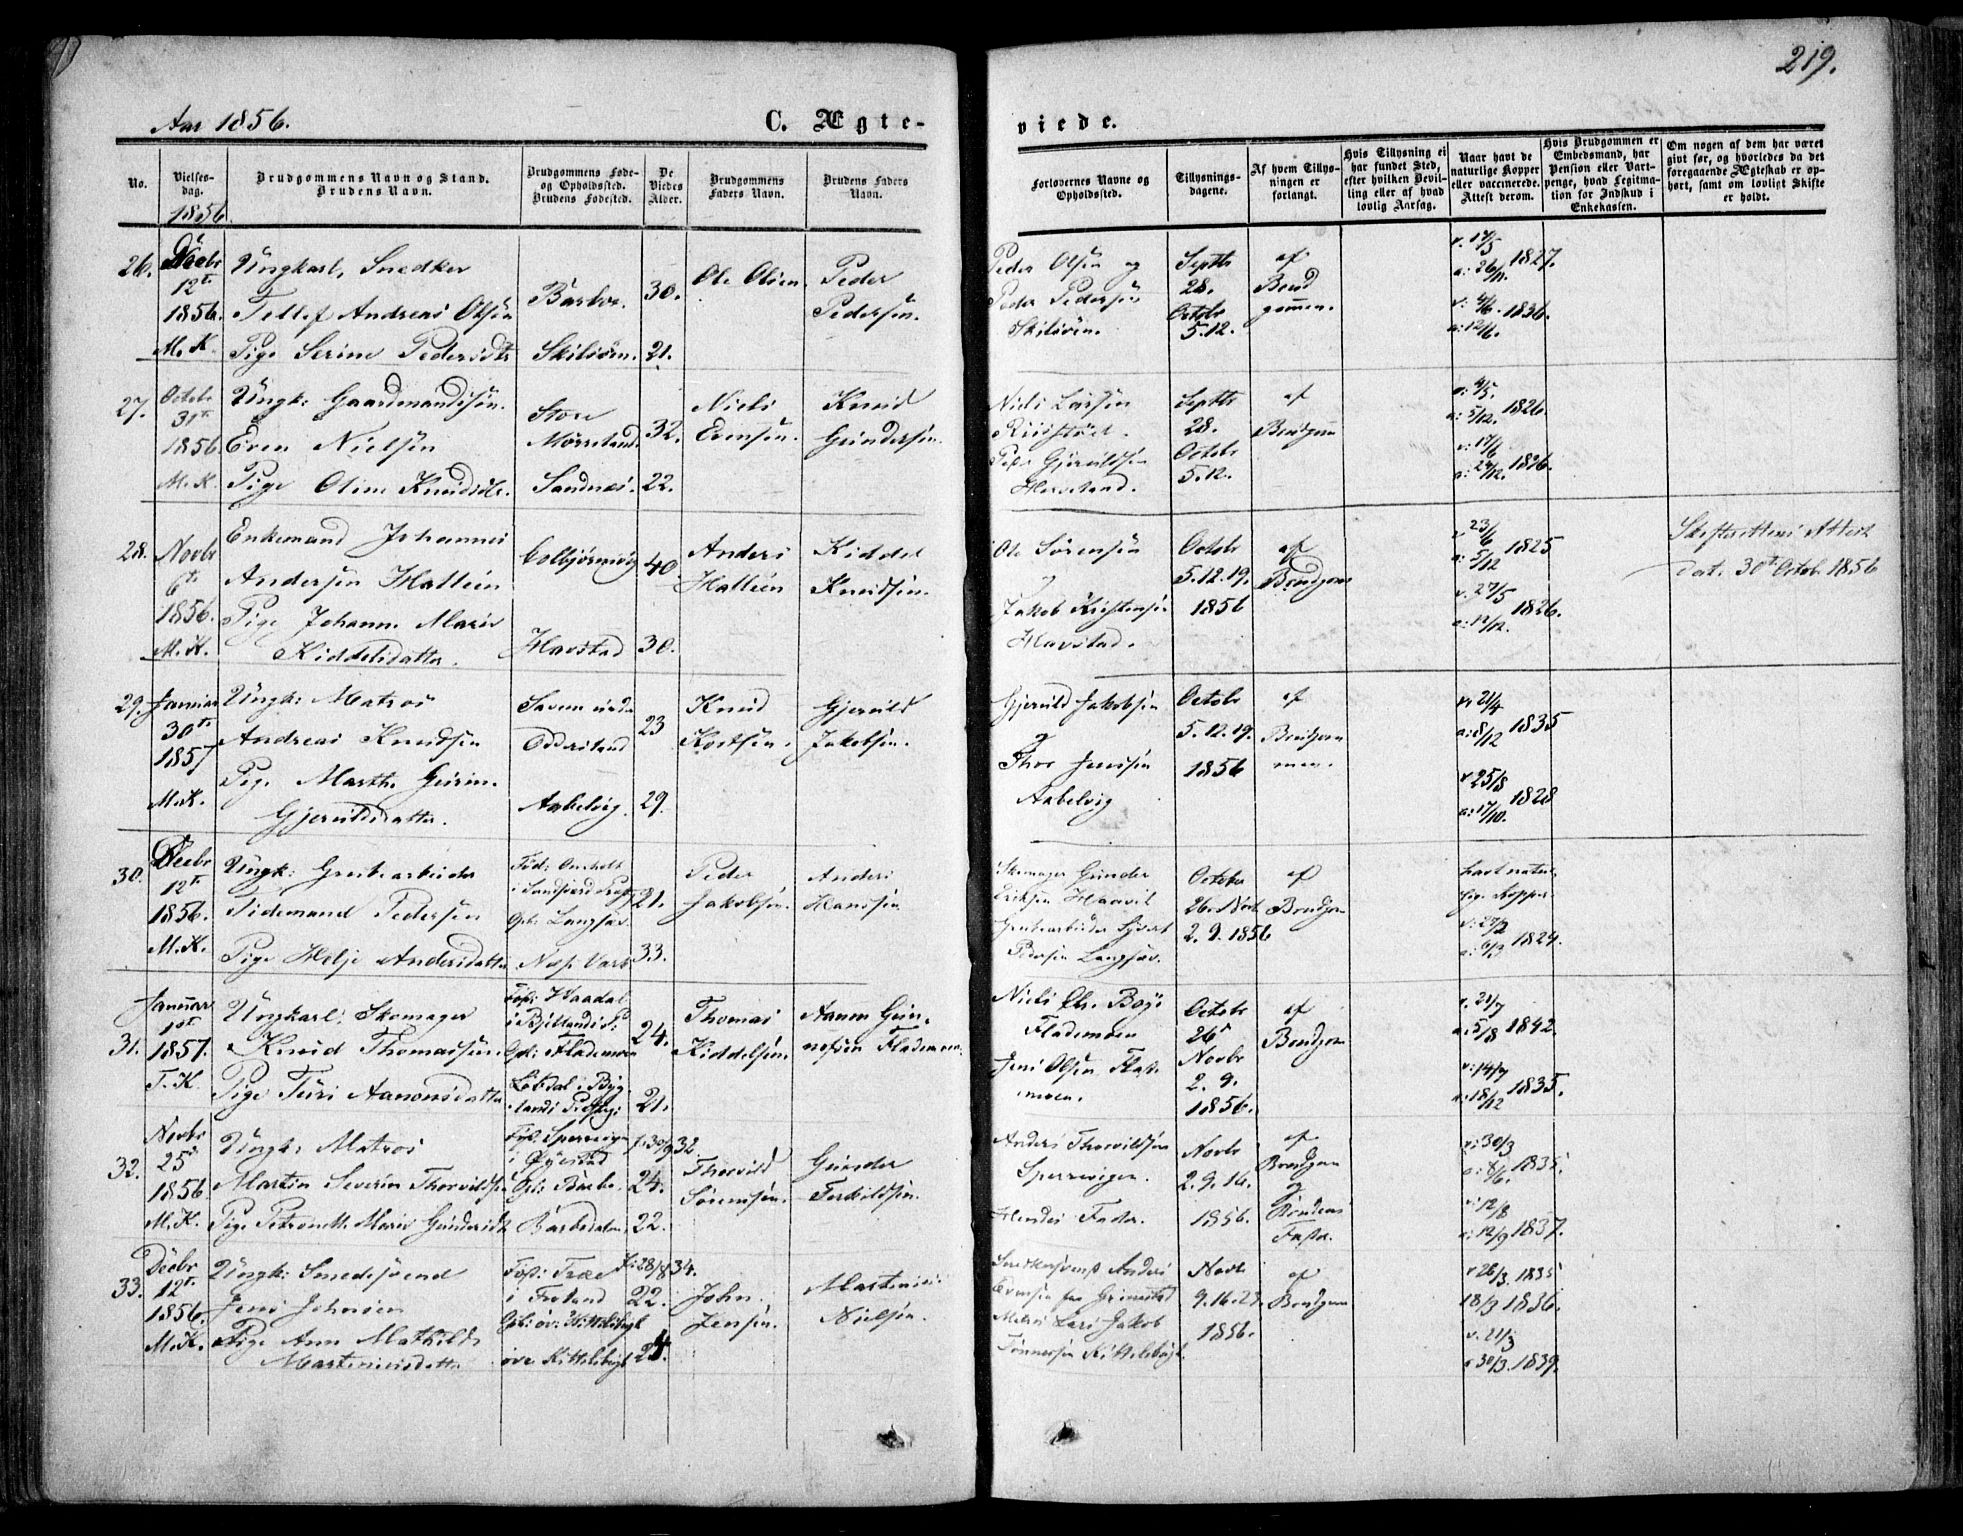 219.
Aar 1856.
C. Ægteviede.
No.
Vielses-
dag.
1856
Brudgommens Navn og Stand.
Brudens Navn.
Brudgommens Føde-
og Opholdssted.
Brudens Fødested.
De
Viedes
Alder.
Brudgommens
Faders Navn.
Brudens Faders
Navn.
Forlovernes Navne og
Opholdssted.
Tillysnings-
dagene.
Af hvem Tillys-
ningen er
forlangt.
Hvis Tillysning ei
har fundet Sted,
efter hvilken Bevil-
ling eller af hvad
lovlig Aarsag.
Naar havt de
naturlige Kopper
eller vaccinerede.
Attest derom.
Hvis Brudgommen er
Embedsmand, har
Pension eller Vart-
penge, hvad Legitima-
tion for Indskud i
Enkekassen.
Om nogen af dem har været
givt før, og hvorledes da det
foregaaende Ægteskab er op-
hørt, samt om lovligt Skifte
er holdt.
26.
Decbr
12te
1856.
M.K.
Ungkarl, Snedker
Tellef Andreas Olsen
Pige Serine Pedersdtr
Barbo.
Skilsøen.
30.
21.
Ole Olsen.
Peder
Pedersen.
Peder Olsen og
Peder Pedersen
Skilsøen.
Septbr
28.
Octobr
5.12.
af
Brud
gommen.
v. 17/5
a: 26/11. 1827.
v: 4/6. 1836.
a: 12/6.
27.
Octobr
31te
1856
M.K.
Ungk: Gaardmandssøn.
Even Nielsen
Pige Oline Knudsdtr.
Store
Mørreland.
Sandnæs.
32.
22.
Niels
Evensen.
Knud
Gundersen.
Niels Larsen
Peder Gjeruldsen
Septbr
28.
Octobr
5.12.
af
Brudgom
v: 4/5.
a: 5/12. 1826.
v: 17/6
a: 24/12. 1836.
28.
Novbr
6te
1856.
M.K.
Enkemand Johannes
Andersen Halleen
Pige Johanne Marie
Kiddelsdatter.
Colbjørnsvig
Havstad
40
30.
Anders
Halleen
Kiddel
Knudsen.
Ole Sørensen
og
Jakob Kristensen
Havstad.
Octobr
5.12.19.
1856
af
Brudgom
v 23/6
a: 5/12 1825
v. 27/5
a: 12/12. 1826.
Skifterettens Attest
dat. 30te Octob. 1856
29.
Januar
30te
1857
M.K.
Ungk: Matros
Andreas Knudsen
Pige Marthe Gurine
Gjeruldsdatter.
Aabelvig.
23
29.
Knud
Gjeruld
Jakobsen.
Gjeruld Jakobsen
og
Thor Jensen
Aabelvig
Octobr
5.12.19.
1856
af
Brudgom
men.
v: 21/4
a: 8/12 1835
v: 25/8
a: 17/10. 1828
30.
Decbr
12te
1856.
M.K.
Ungk: Grubearbeider
Tidemand Pedersen
Pige Helje Andersdatter
Fød: Omholt
Oph: Langsæ.
21.
33.
Peder
Jakobsen.
Anders
Hansen
Skomager Gunder
Eriksen
Grubearbeider
Pedersen Langsæ.
October
26. Novb
2.9.1856
af
Brudgom
havt natur-
lige Kopper
v: 27/2
a: 6/3 1824.
31.
Januar
1st
1857.
T.K.
Ungkarl, Skomager
Knud Thomassen.
Pige Turi Aanonsdatter
Fød: Haadal
Oph: Flademoen
24.
21.
Thomas
Kiddelsen.
Aanon Gun-
Flademoen.
Niels Chr. Boye
Flademoen
Jens Olsen Flade
moen.
Octobr
26
Novbr
2.9.
1856.
af
Brudgom
v. 21/7
a: 5/8 1842.
v: 14/7
a: 18/12 1835.
32.
Novbr
25d
1856
M.K.
Ungk: Matros
Martin Severin Thorvildsen
Pige Petronelle Marie Gundersdt
Fød: Sperrevigen
i Øyestad
Oph: Barbo.
Barbodalen.
f: 30/9 32.
24.
22.
Thorvild
Sørensen.
Gunder
Terkildsen.
Anders Thorvildsen
Sperrevigen.
Hendes Fader.
Novbr
2.9.16.
1856.
af
Brudgom
og
Brudens
Fader.
v: 30/3
a: 8/6. 1835
v: 12/8
a: 12/9 1837.
33.
Decbr
12te
1856.
M.K.
Ungk: Smedesvend
Jens Johnsen
Pige Ann Mathilde
Marteniusdatter
Fød: Træe
i Froland
øvre Kittelsbugt
f: 28/8 34.
22.
24.
John
Jensen.
Martenius
Nielsen.
Anders
Evensen paa Grimstad
Lars Jakob
Tønnesen Kittelsbugt.
Novbr
9.16.23
1856.
af
Brudgom
v 26/3. 1835
18/3 1836.
v. 21/3
a 30/3. 1839.